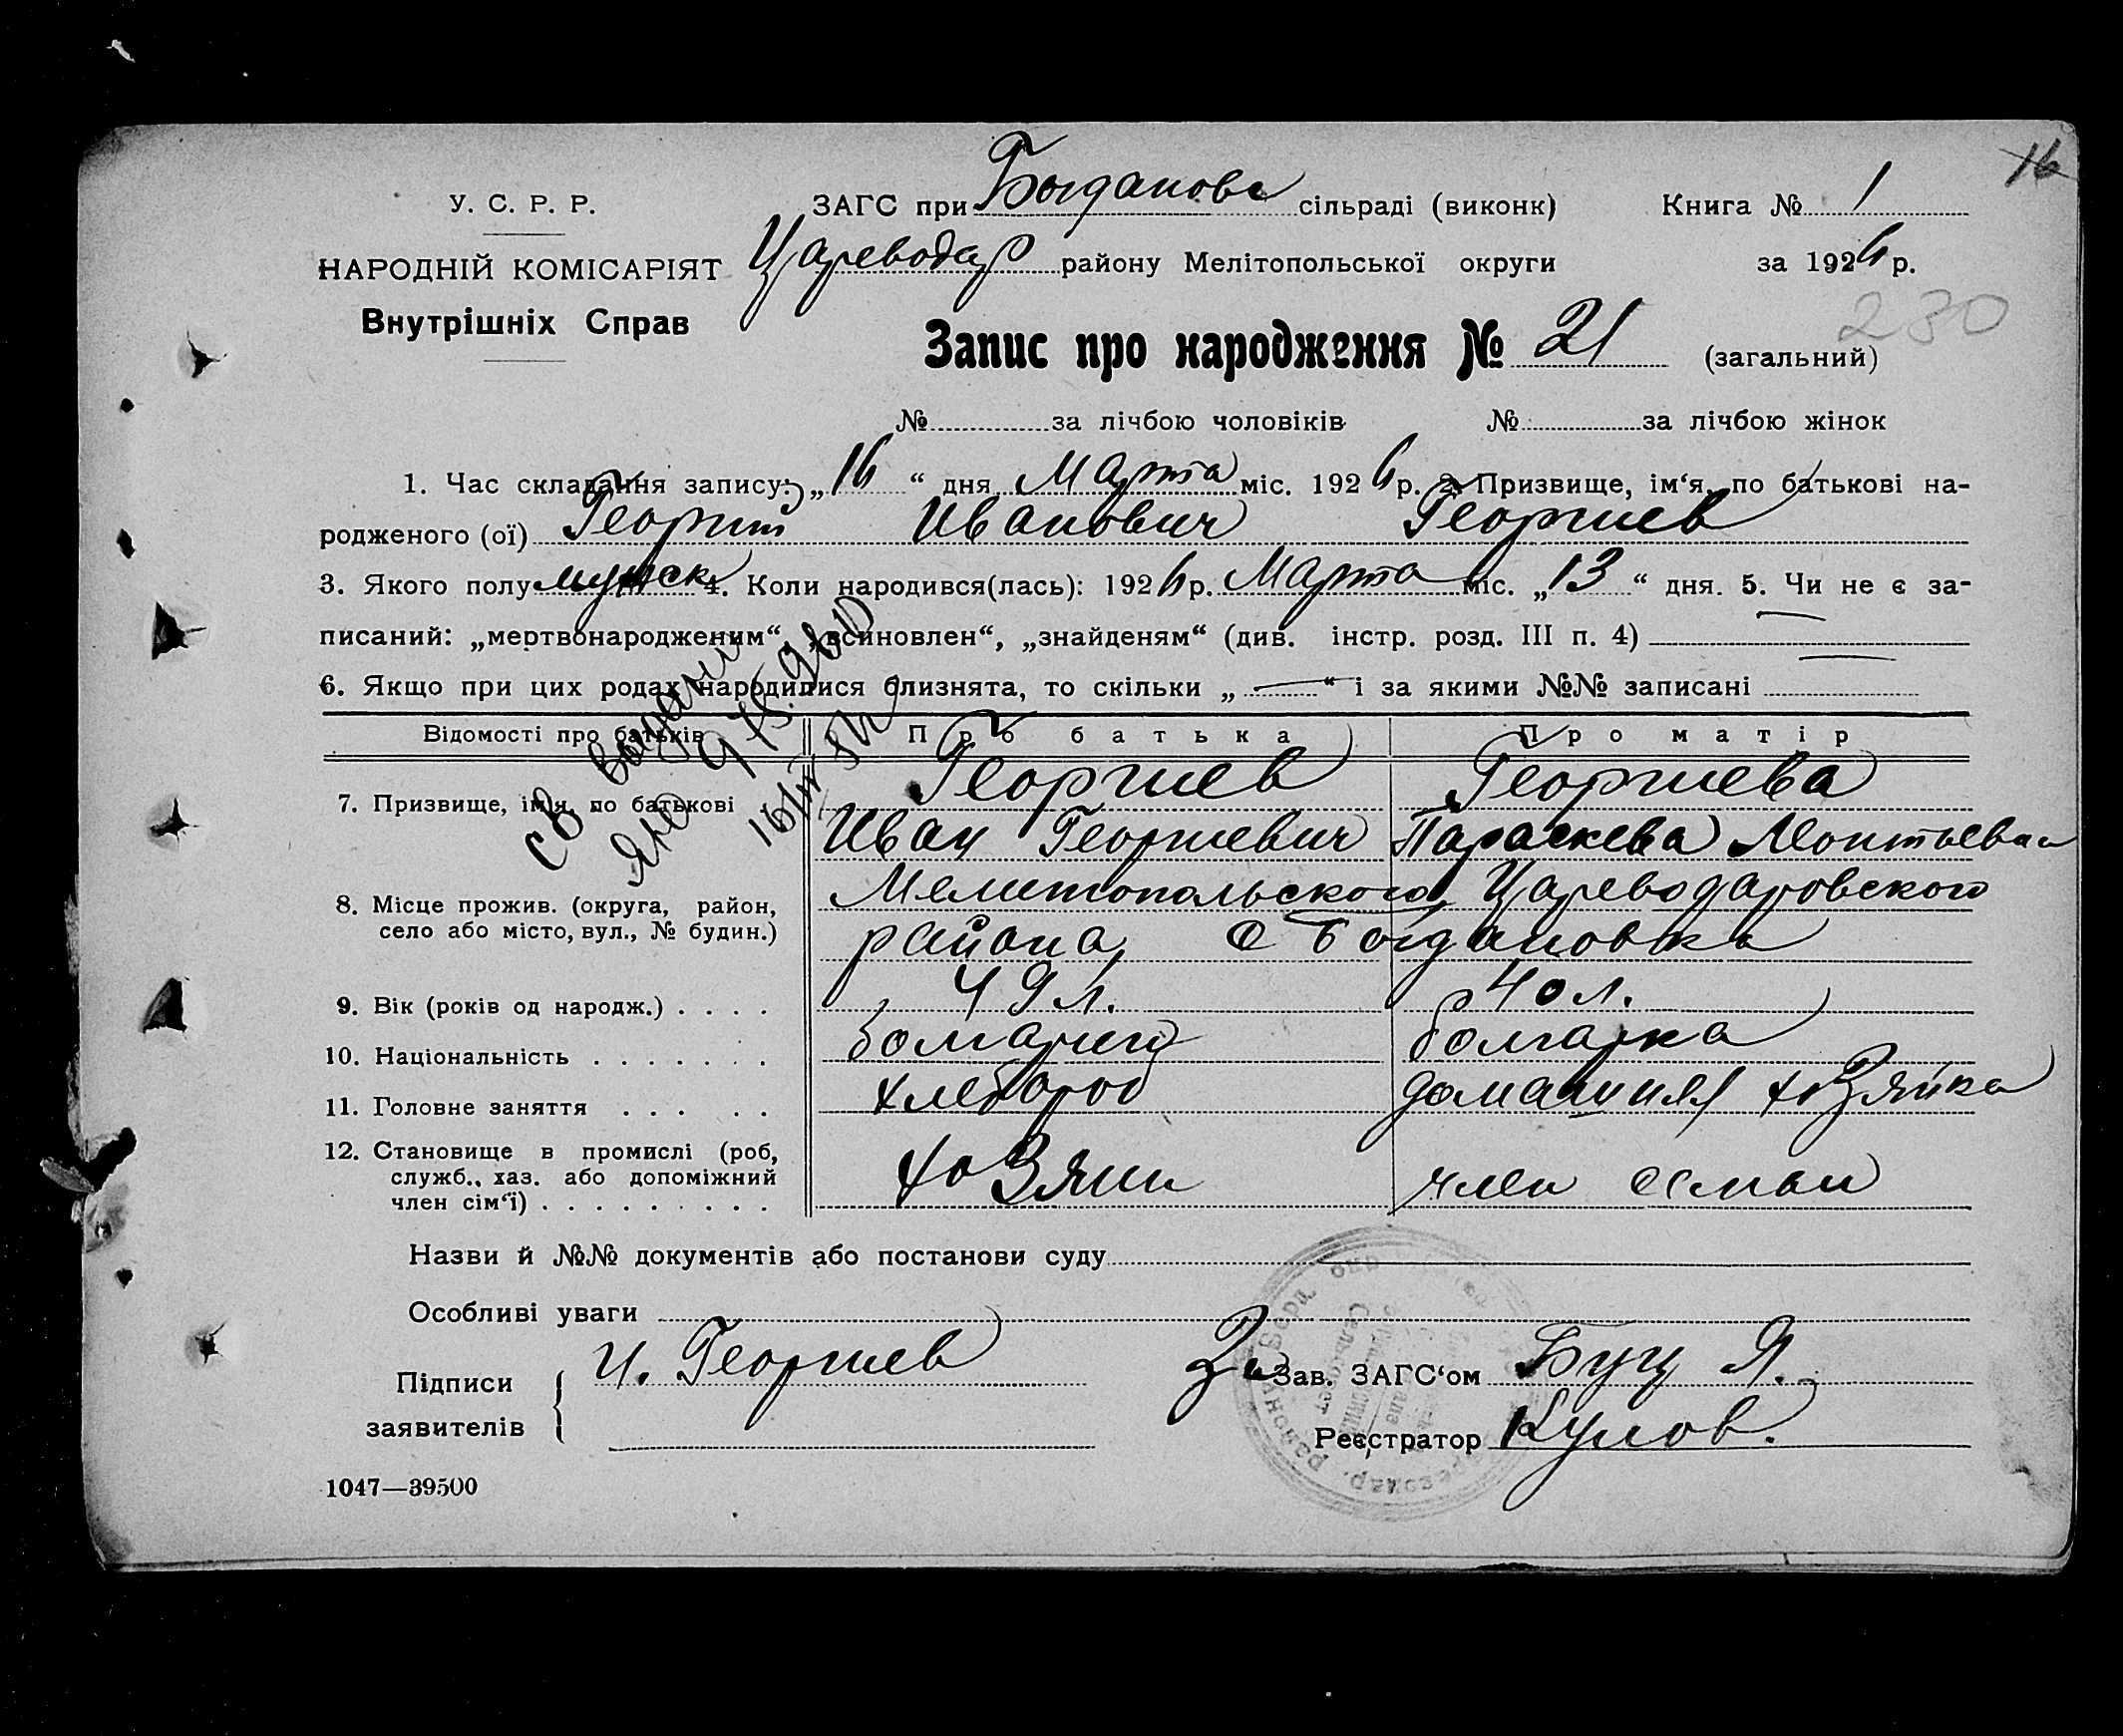 16
У. С. Р. Р.
НАРОДНІЙ КОМІСАРІЯТ
Внутрішніх Справ
ЗАГС при Богданове сільраді (виконк)
Книга № 1
Цареводар району Мелітопольської округи
за 1926 р.
230
Запис про народження № 21 (загальний)
№ за лічбою чоловіків № за лічбою жінок
1. Час складання запису: „16“ дня Марта міс. 1926 р. 2. Призвище, ім‘я, по батькові на-
родженого (ої) Георгий Иванович Георгиев
3. Якого полу мужск 4. Коли народився(лась): 1926 р. Марта міс. „13“ дня. 5. Чи не є за-
писаний: „мертвонародженим“, „всиновлен“, „знайденям“ (див. інстр. розд. III п. 4) —
6. Якщо при цих родах народилися близнята, то скільки „—“ і за якими №№ записані —
Відомості про батьків Про батька Про матір
7. Призвище, ім‘я, по батькові Георгиев Георгиева
Иван Георгиевич Параскева Леонтьевна
8. Місце прожив. (округа, район, Мелитопольского, Цареводаровского
село або місто, вул., № будин.) района, с Богдановка
9. Вік (років од народж.) . . . . 49 л. 40 л.
10. Національність . . . . . . . болгарин болгарка
11. Головне заняття . . . . . хлебороб домашняя хозяйка
12. Становище в промислі (роб,
служб., хаз. або допоміжний
член сім‘ї) . . . . . . . . . хозяин член семьи
Св выдан
ЯЮ
Назви й №№ документів або постанови суду
Особливі уваги
Підписи
заявителів
И. Георгиев
За Зав. ЗАГС‘ом Буц Я.
Реєстратор Кулов.
1047—39500